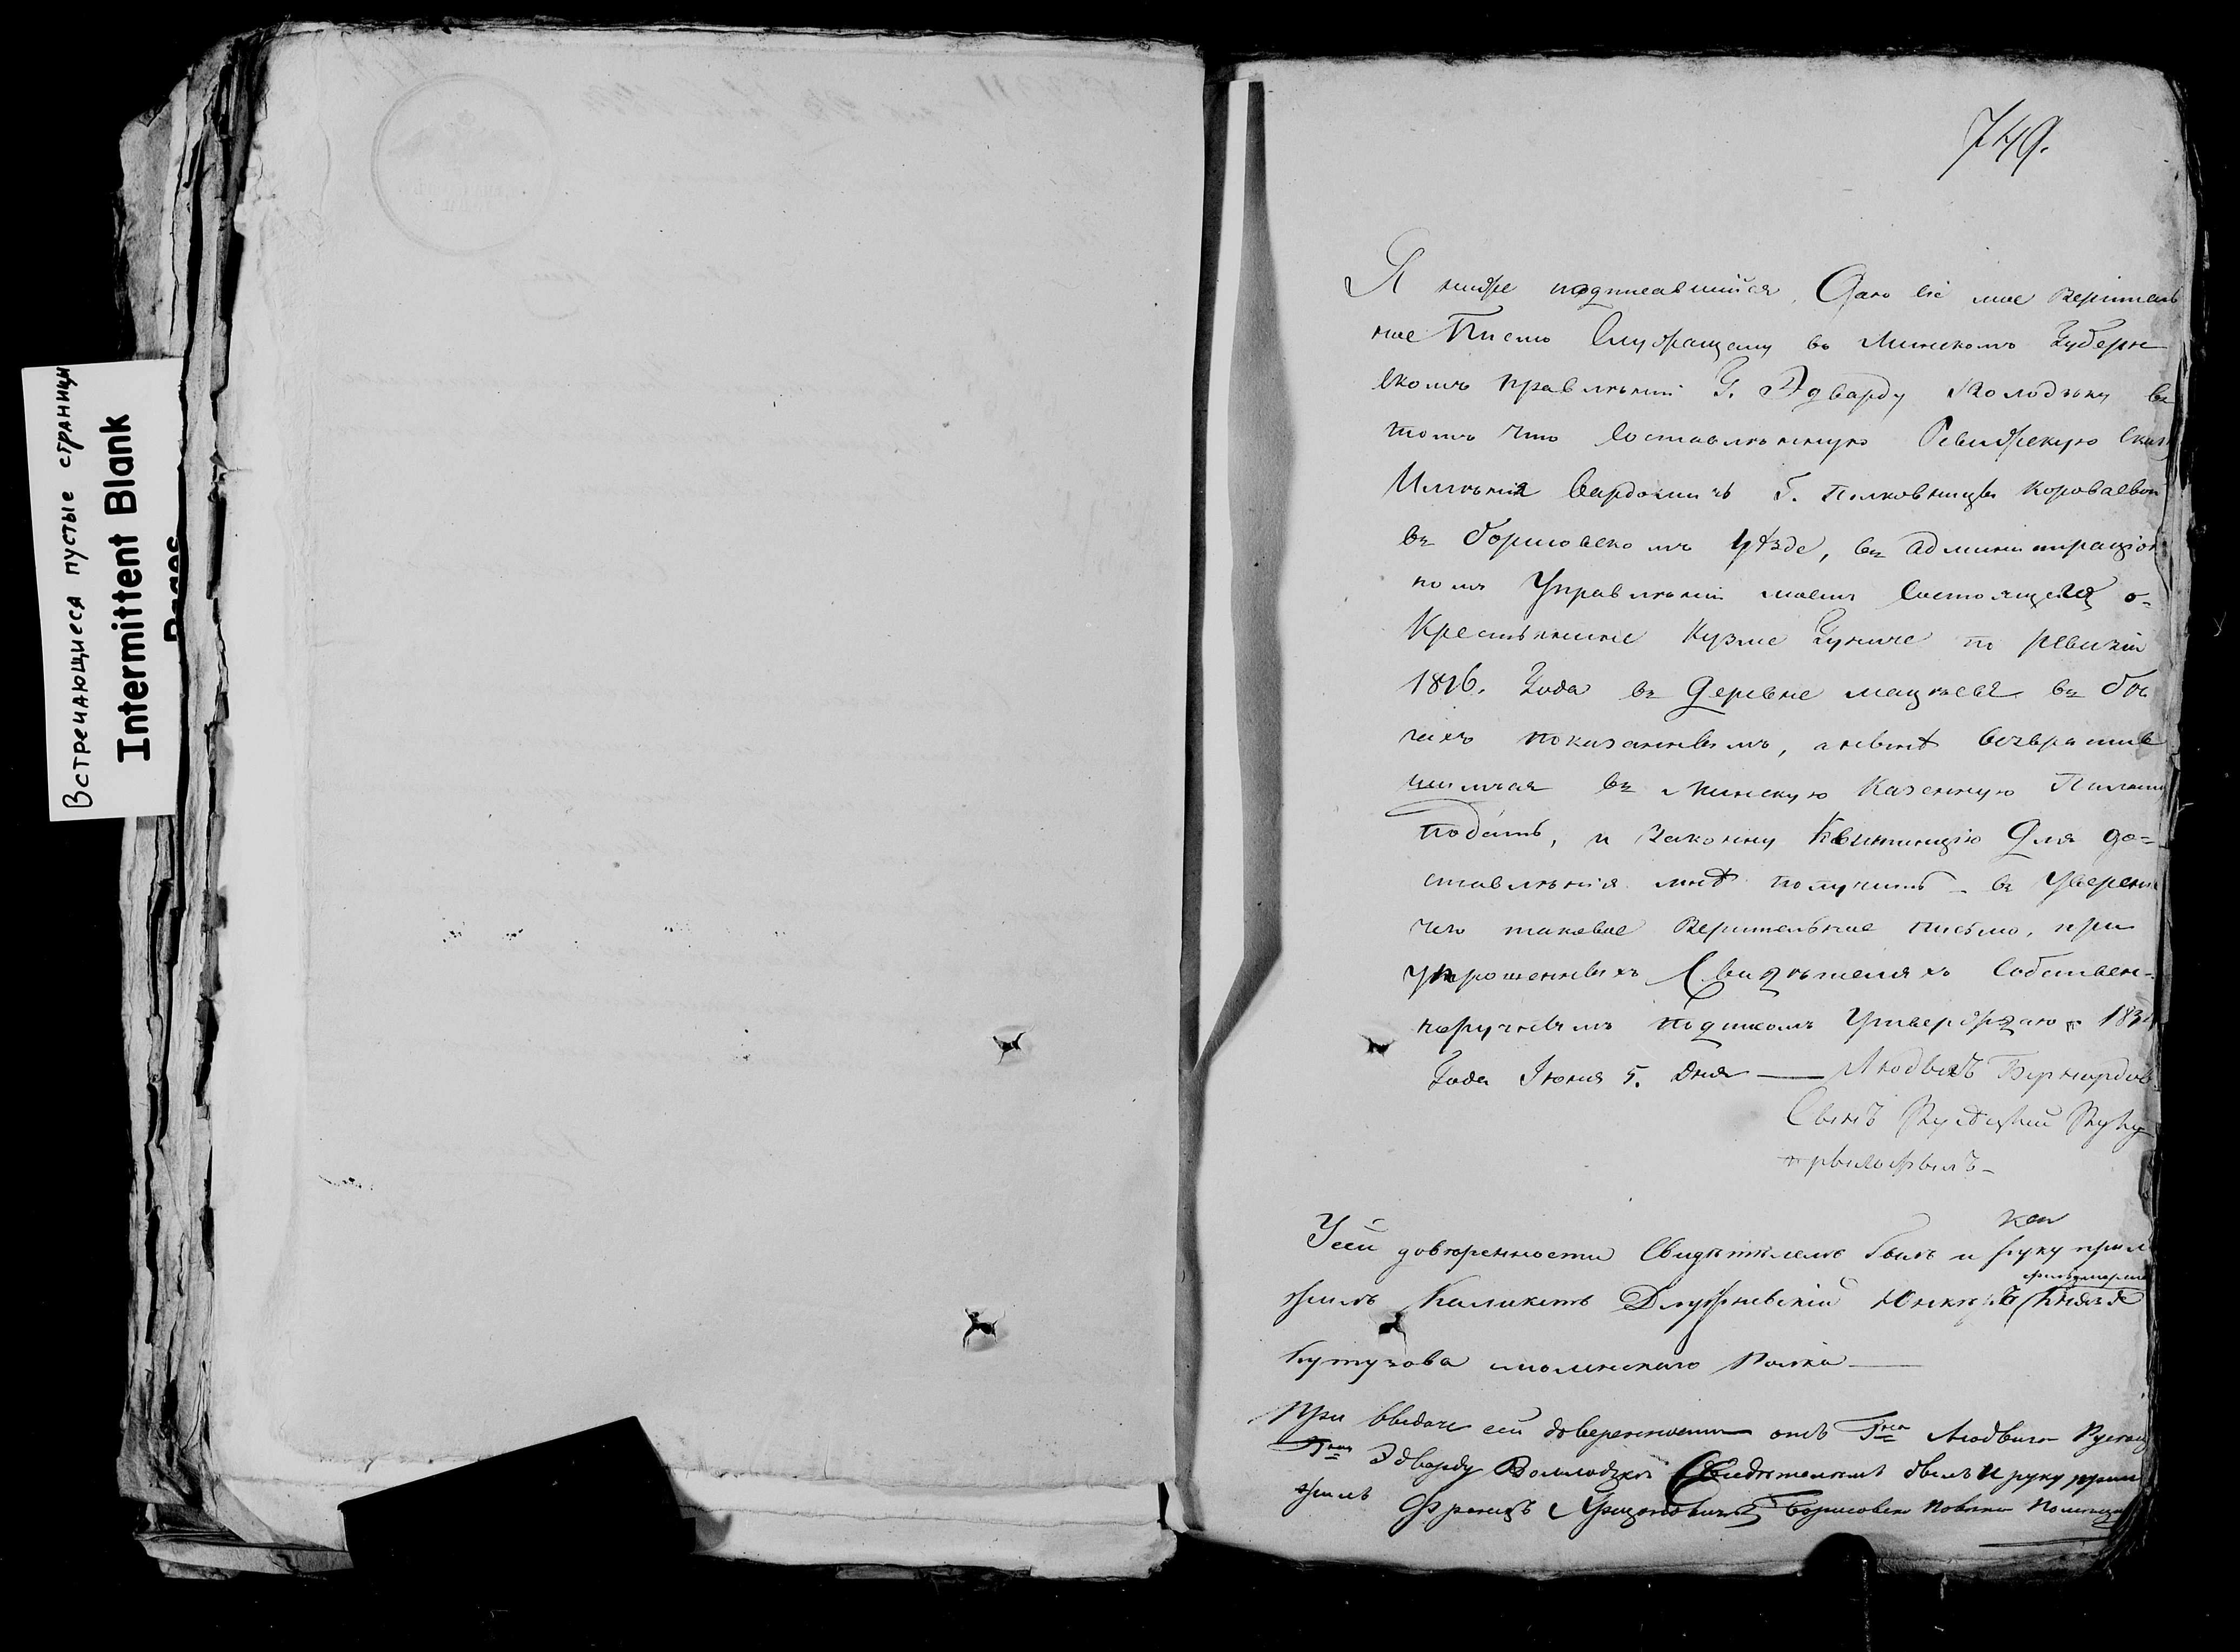 Встречающиеся пустые страницы
Intermittent Blank
Pages
749.
Я ниже подписавшийся, Даю сіе мое веритель
ное Писмо Служащему въ Минскомъ Губерн
скомъ правленіи Г. Эдварду Володзьку въ
томъ что составленную Ревижскую сказ
Имѣнія Г. Полковницы Короваевои
въ борисовскомъ уѣзде, въ администраціон
номъ Управленіи моемъ состоящего о-
Крестьянине Кузме по ревизіи
1816. Года въ деревне въ бѣ
гахъ показаннымъ, а нынѣ возвратив
шимся въ Минскую Казенную Палату
подать, и законну Квитанцію Для до=
ставленія мнѣ получить - въ Уверени
чего таковое верительное писмо, при
упрошенныхъ Свидѣтеляхъ Собствен-
норучнымъ подписомъ Утверждаю 183
Года Іюня 5. дня — Людвикъ Бернардов
Сынъ руку
приложилъ-
У сеи доверенности Свидѣтелемъ былъ и руку прил
жилъ Каликстъ Юнкеръ Князя
Кутузова смоленскаго Полка —
При выдаче сеи доверенности отъ Гна Людвига
Гну Эдварду Володзко Свидѣтелемъ былъ и руку прило
жилъ Францъ Борисовск Повѣта Помещик